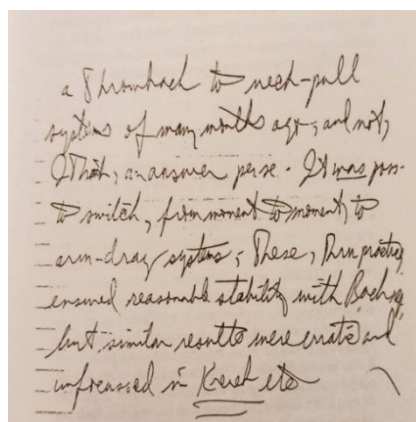 a Throwback to neck-pull
systems of many months ago, and not,
I think, an answer per se. It was poss-
to switch, from moment to moment, to
arm-drag systems; These, thru practice,
ensured reasonable stability with Bach,
but similar results were erratic and
in etc